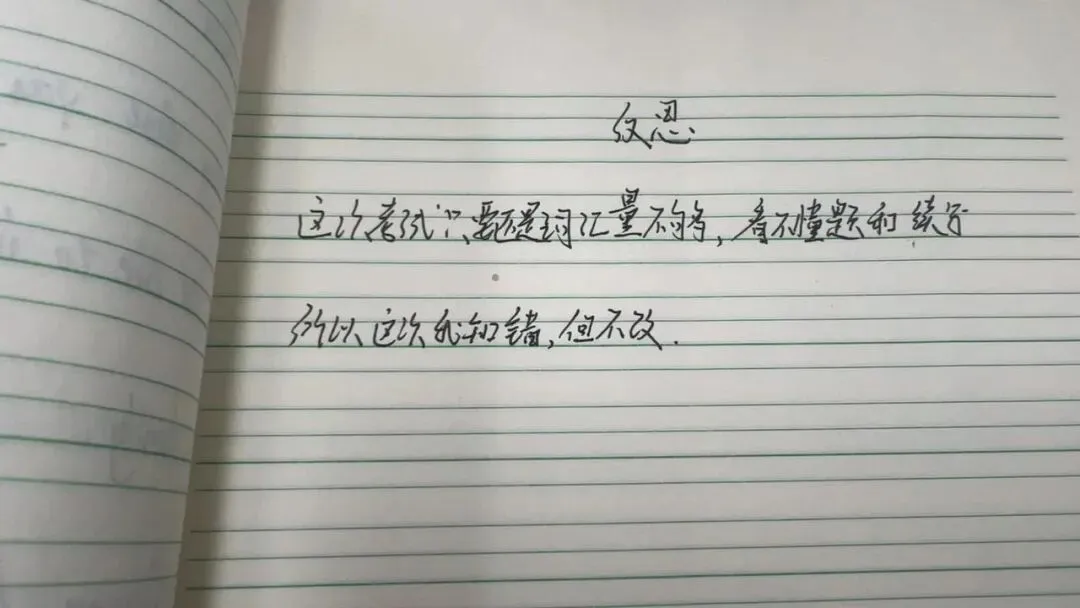 反思
这次考试只要还是词汇量不够,看不懂题和续写
所以这次我知错,但不改.